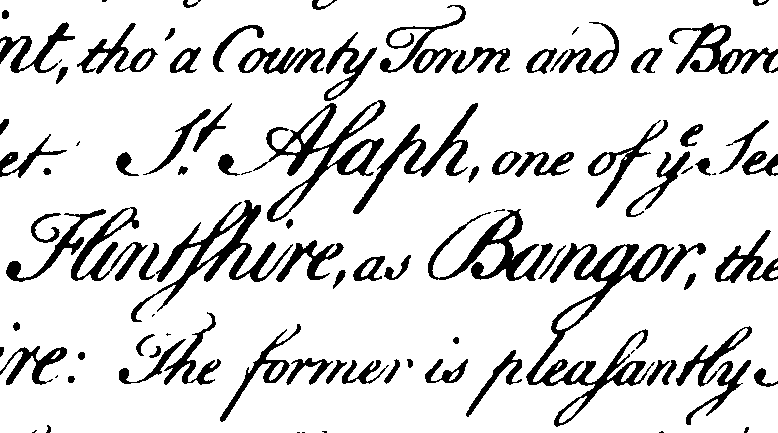 nt, tho' a County Town and a Boro
et. St. Aſaph, one of yᵉ See
Flintſhire, as Bangor, the
ire: The former is pleaſantly